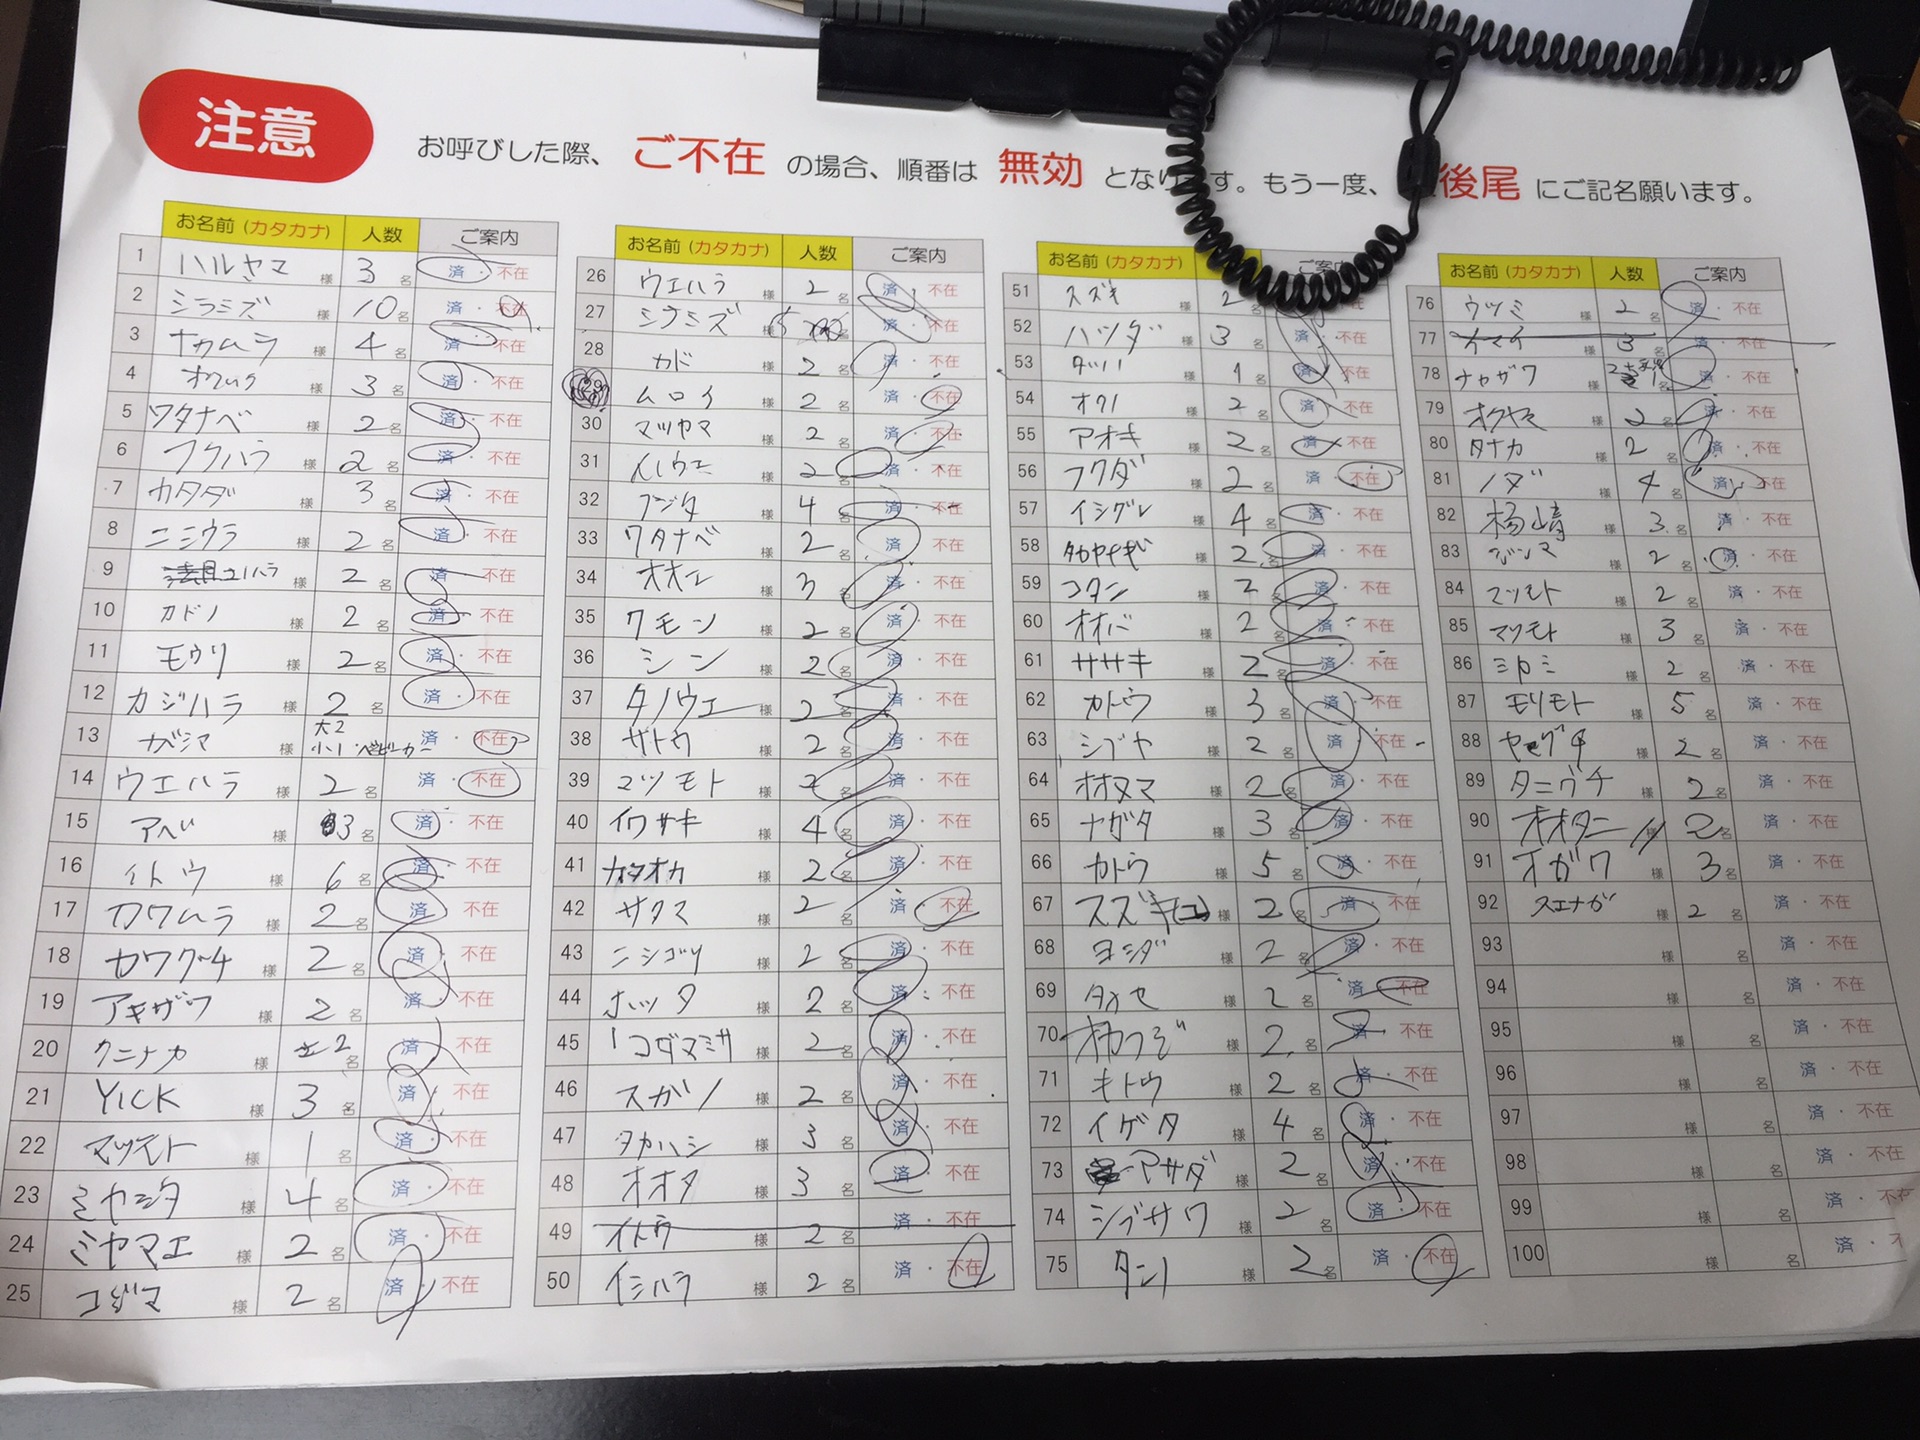 注意 お呼びした際、 ご不在 の場合、順番は 無効 となります。もう一度、 後尾 にご記名願います。
お名前 (カタカナ) 人数 ご案内
1 ハルヤマ 様 3 名 済 ・ 不在
2 シラミズ 様 10 名 済 ・ 不在
3 ナカムラ 様 4 名 済 ・ 不在
4 様 3 名 済 ・ 不在
5 ワタナベ 様 2 名 済 ・ 不在
6 フクハラ 様 2 名 済 ・ 不在
7 カタダ 様 3 名 済 ・ 不在
8 ニシウラ 様 2 名 済 ・ 不在
9 様 2 名 済 ・ 不在
10 カドノ 様 2 名 済 ・ 不在
11 モウリ 様 2 名 済 ・ 不在
12 カジハラ 様 2 名 済 ・ 不在
13 ナベシマ 様 大2 小1 ベビーカー 済 ・ 不在
14 ウエハラ 様 2 名 済 ・ 不在
15 アベ 様 3 名 済 ・ 不在
16 イトウ 様 6 名 済 ・ 不在
17 カワムラ 様 2 名 済 ・ 不在
18 カワグチ 様 2 名 済 ・ 不在
19 アキザワ 様 2 名 済 ・ 不在
20 クニナカ 様 2 名 済 ・ 不在
21 YICK 様 3 名 済 ・ 不在
22 マツモト 様 1 名 済 ・ 不在
23 ミヤシタ 様 4 名 済 ・ 不在
24 ミヤマエ 様 2 名 済 ・ 不在
25 コジマ 様 2 名 済 ・ 不在
お名前 (カタカナ) 人数 ご案内
26 ウエハラ 様 2 名 済 ・ 不在
27 シミズ 様 5 名 済 ・ 不在
28 カド 様 2 名 済 ・ 不在
29 ムロイ 様 2 名 済 ・ 不在
30 マツヤマ 様 2 名 済 ・ 不在
31 イノウエ 様 2 名 済 ・ 不在
32 フジタ 様 4 名 済 ・ 不在
33 ワタナベ 様 2 名 済 ・ 不在
34 オオエ 様 3 名 済 ・ 不在
35 クモン 様 2 名 済 ・ 不在
36 シン 様 2 名 済 ・ 不在
37 タノウエ 様 2 名 済 ・ 不在
38 サトウ 様 2 名 済 ・ 不在
39 マツモト 様 2 名 済 ・ 不在
40 イワサキ 様 4 名 済 ・ 不在
41 カタオカ 様 2 名 済 ・ 不在
42 サクマ 様 2 名 済 ・ 不在
43 ニシゴリ 様 2 名 済 ・ 不在
44 ホッタ 様 2 名 済 ・ 不在
45 コダマミサ 様 2 名 済 ・ 不在
46 スガノ 様 2 名 済 ・ 不在
47 タカハシ 様 3 名 済 ・ 不在
48 オオタ 様 3 名 済 ・ 不在
49 イトウ 様 2 名 済 ・ 不在
50 イシハラ 様 2 名 済 ・ 不在
お名前 (カタカナ) ご案内
51 スズキ 様 2 済 ・ 不在
52 ハツダ 様 3 名 済 ・ 不在
53 様 1 名 済 ・ 不在
54 オクノ 様 2 名 済 ・ 不在
55 アオキ 様 2 名 済 ・ 不在
56 フクダ 様 2 名 済 ・ 不在
57 イシグレ 様 4 名 済 ・ 不在
58 タカヤナギ 様 2 名 済 ・ 不在
59 コタニ 様 2 名 済 ・ 不在
60 オオバ 様 2 名 済 ・ 不在
61 ササキ 様 2 名 済 ・ 不在
62 カトウ 様 3 名 済 ・ 不在
63 シブヤ 様 2 名 済 ・ 不在
64 オオヌマ 様 2 名 済 ・ 不在
65 ナガタ 様 3 名 済 ・ 不在
66 カトウ 様 5 名 済 ・ 不在
67 スズキ(ユ) 様 2 名 済 ・ 不在
68 ヨシダ 様 2 名 済 ・ 不在
69 タメセ 様 2 名 済 ・ 不在
70 様 2 名 済 ・ 不在
71 キトウ 様 2 名 済 ・ 不在
72 イゲタ 様 4 名 済 ・ 不在
73 アサダ 様 2 名 済 ・ 不在
74 シブサワ 様 2 名 済 ・ 不在
75 タンノ 様 2 名 済 ・ 不在
お名前 (カタカナ) 人数 ご案内
76 ウツミ 様 2 名 済 ・ 不在
77 イマイ 様 3 名 済 ・ 不在
78 ナカザワ 様 名 済 ・ 不在
79 オクヤマ 様 2 名 済 ・ 不在
80 タナカ 様 2 名 済 ・ 不在
81 ノダ 様 4 名 済 ・ 不在
82 楊﨑 様 3 名 済 ・ 不在
83 ジンマ 様 2 名 済 ・ 不在
84 マツモト 様 2 名 済 ・ 不在
85 マツモト 様 3 名 済 ・ 不在
86 ミカミ 様 2 名 済 ・ 不在
87 モリモト 様 5 名 済 ・ 不在
88 ヤギタ 様 2 名 済 ・ 不在
89 タニグチ 様 2 名 済 ・ 不在
90 オオタニ 様 2 名 済 ・ 不在
91 オガワ 様 3 名 済 ・ 不在
92 スエナガ 様 2 名 済 ・ 不在
93 様 名 済 ・ 不在
94 様 名 済 ・ 不在
95 様 名 済 ・ 不在
96 様 名 済 ・ 不在
97 様 名 済 ・ 不在
98 様 名 済 ・ 不在
99 様 名 済 ・ 不在
100 様 名 済 ・